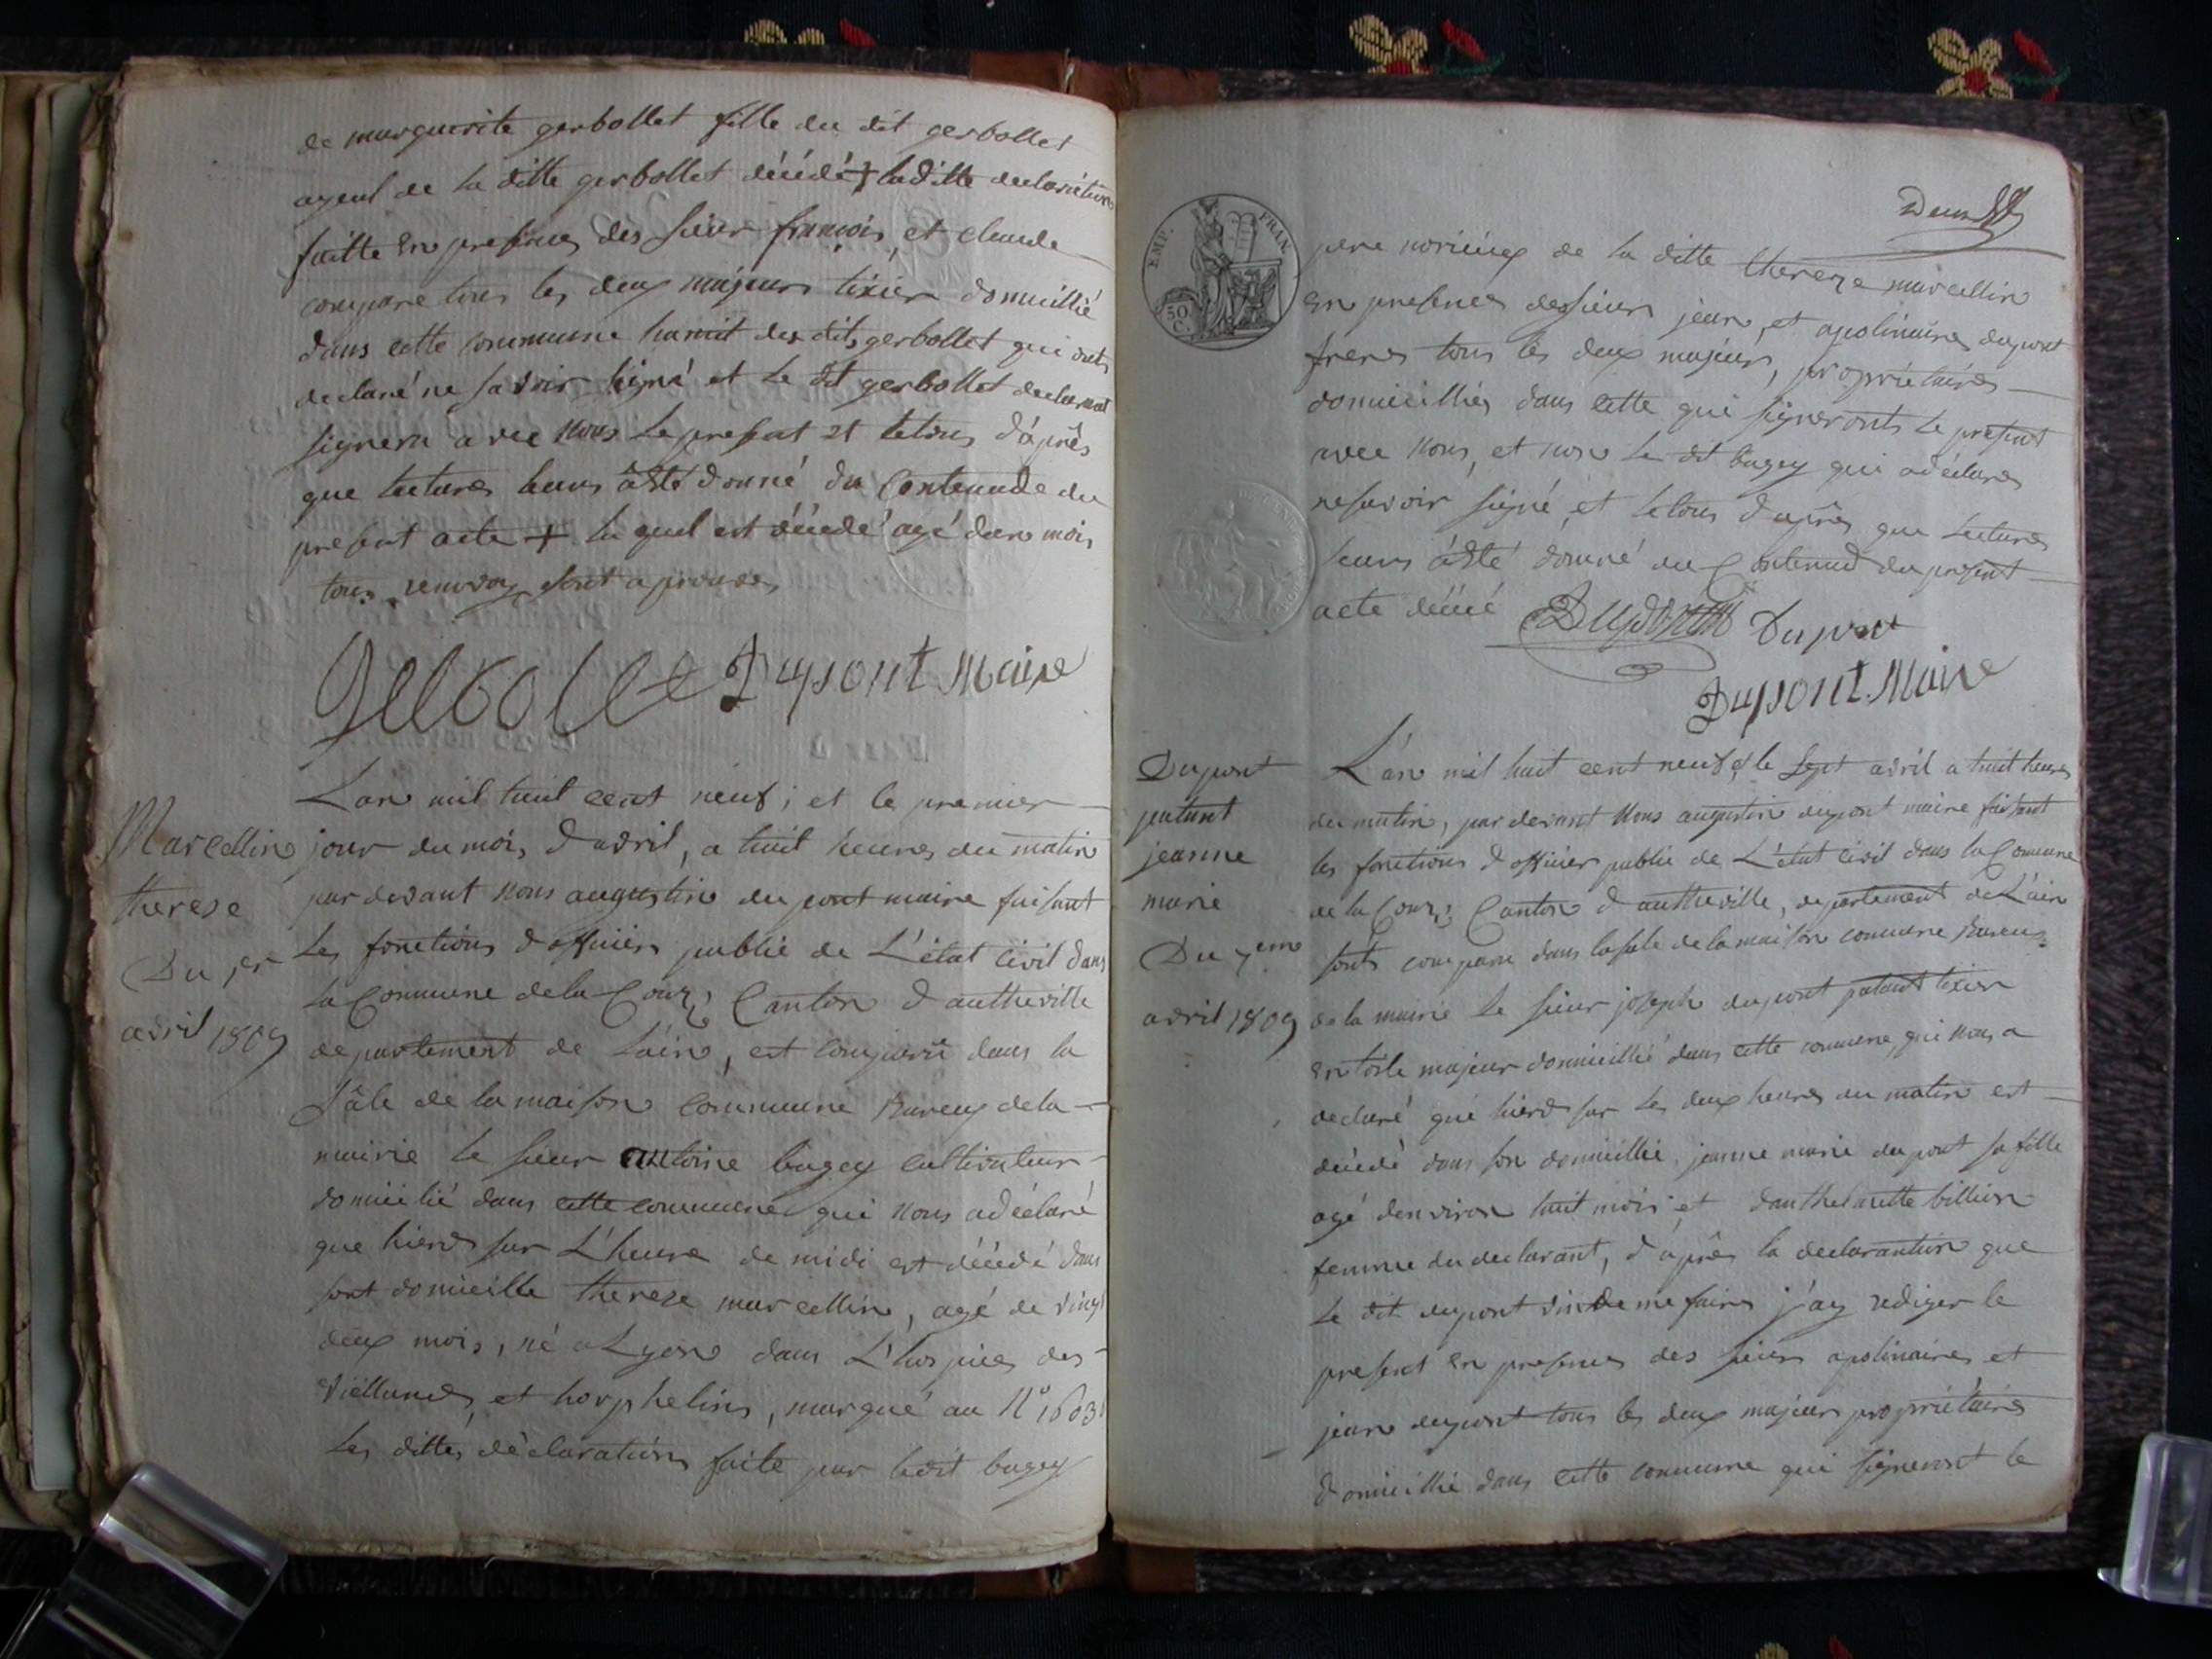 de marguerite gerbollet fille du dit gerbollet
ayeul de la ditte gerbollet décédé + laditte declaration
faitte en presence des sieur francois et claude
compare tous les deux majeurs tixier domicillié
dans cette commune des dits gerbollet qui ont
declaré ne savoir signé et le dit gerbollet declarant
signera avec nous le present et letous d'après
que lectures leurs àété donné du Contenude du
present acte + la quel est décédé agé dun mois
tous renvoy sont aprouvés
Gerbollet Dupont Maire
Marcellin
therese
Du 1er
avril 1809
L'an mil huit cent neuf ; et le premier
jour du mois d'avril, a huit heures du matin
par devant nous augustin du pont maire faisant
Les fonctions d'officiers publié de L'état civil dans
la Commune de la Coux ; Canton d'autheville
departement de Lain, est comparû dans la
Sâle de la maison commune Bureux de la
mairie le sieur antoine bugey cultivateur
domicilié dans cette commune qui nous adéclaré
que hierd sur L'heure de midi est décédé dans
sont domicille thereze marcelline, agé de vingt
deux mois, né a Lyon dans L'hospice des
viellards, et horphelins, marqué au N° 1603
Les dittes dèclarations faite par ledit bugey
Deux
pere noricier de la ditte thereze marcellin
en presences des sieurs jean, et apolinaires dupont
freres tous les deux majeurs, propriétaires
domicilliés dans cette qui signeronts le present
avec nous, et non le dit bugey qui adéclaré
nesavoir signé, et letous d'après que lectures
leurs àété donné du Contenud du present
acte décés
Dupont Dupont
Dupont Maire
Dupont
patant
jeanne
marie
Du 7eme
avril 1809
L'an mil huit cent neuf, et le sept avril a huit heures
du matin, par devant nous augustin dupont maire faisant
les fonctions d'officier publié de L'état civil dans la Commune
de la Coux ; Canton d'autheville, departement de L'ain
sonts compare dans lasale de la maison commune Bureux
de la mairie le sieur joseph dupont patant tixier
en toile majeur domicillié dans cette commune, qui nous a
declaré que hierd sur les deux heures du matin est
décédé dans son domicillie, jeanne marie dupont sa fille
agé denviron huit mois et billion
femme du declarant, d'après la declarantion que
le dit dupont vin de me faires j'ay rediger le
present en presences des sieurs apolinaires et
jean dupont tous les deux majeurs propriétaires
domicillié dans cette commune qui signeront le
EMP. FRAN.
50
C.